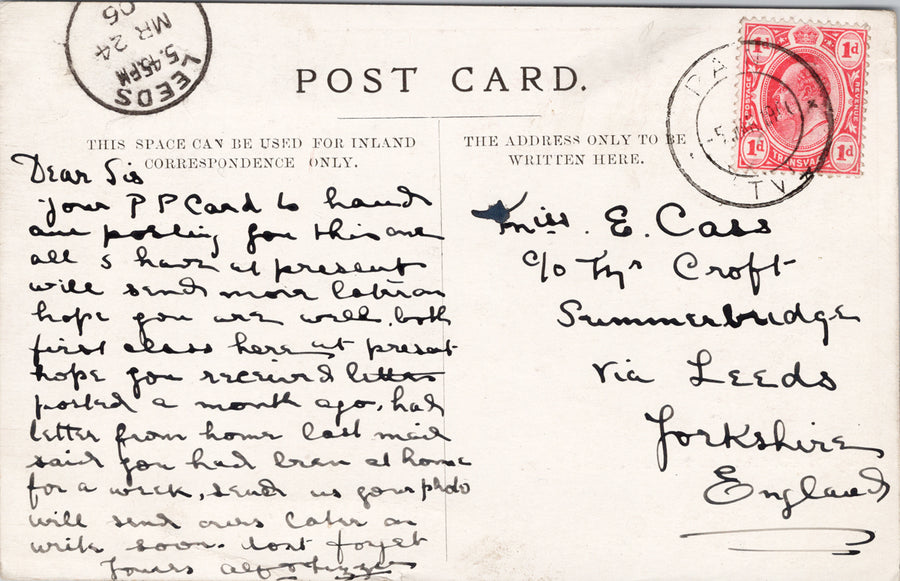 LEEDS
5.45PM
MR 24
06
POST CARD.
THIS SPACE CAN BE USED FOR INLAND
CORRESPONDENCE ONLY.
THE ADDRESS ONLY TO BE
WRITTEN HERE.
1d 1d
POSTAGE REVENUE
1d 1d
TRANSVAAL
TV
Dear Sis
your PPCard to hand
am posting you this one
all I have at present
will send more later on
hope you are well, both
first class here at present
hope you received letter
posted a month ago, had
letter from home last mail
said you had been at home
for a week, send us your photo
will send ours later on
write soon. dont forget
Yours Alf & Lizzie
Miss. E. Cass
c/o Mrs Croft
Summerbridge
via Leeds
Yorkshire
England